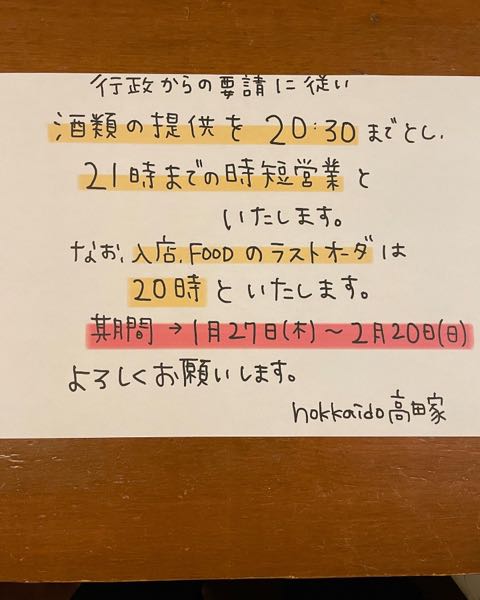 行政からの要請に従い
酒類の提供を 20:30 までとし、
21時までの時短営業と
いたします。
なお、入店、FOOD のラストオーダは
20時といたします。
期間 → 1月27日(木)〜2月20日(日)
よろしくお願いします。
hokkaido 高田家